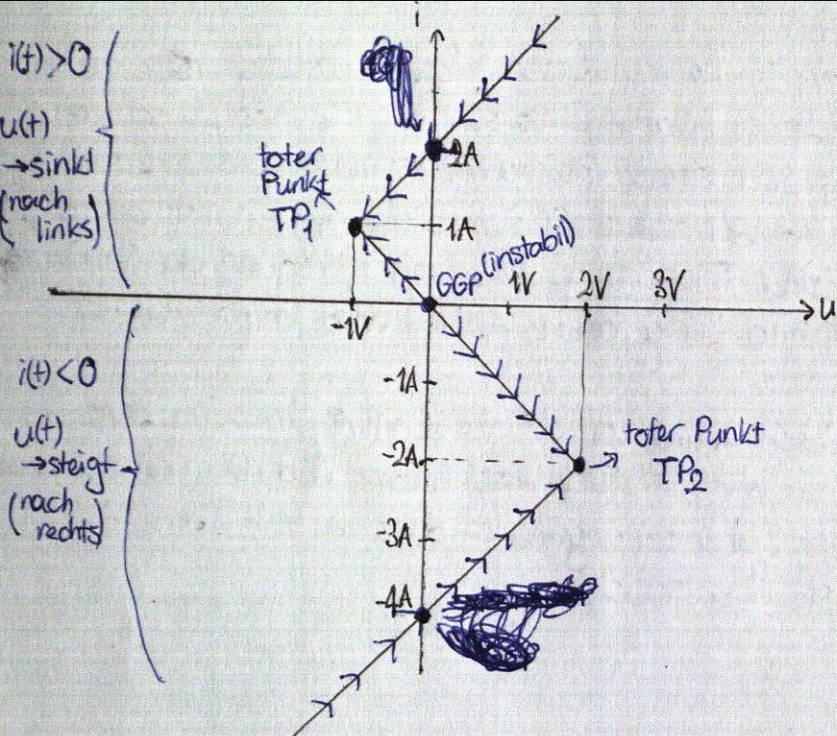 i
i(t)>0
u(t)
→sinkt
(nach
links)
toter
Punkt
TP₁
2A
1A
GGP (instabil)
-1V
1V
2V
3V
u
i(t)<0
u(t)
→steigt
(nach
rechts)
-1A
-2A
toter Punkt
TP₂
-3A
-4A